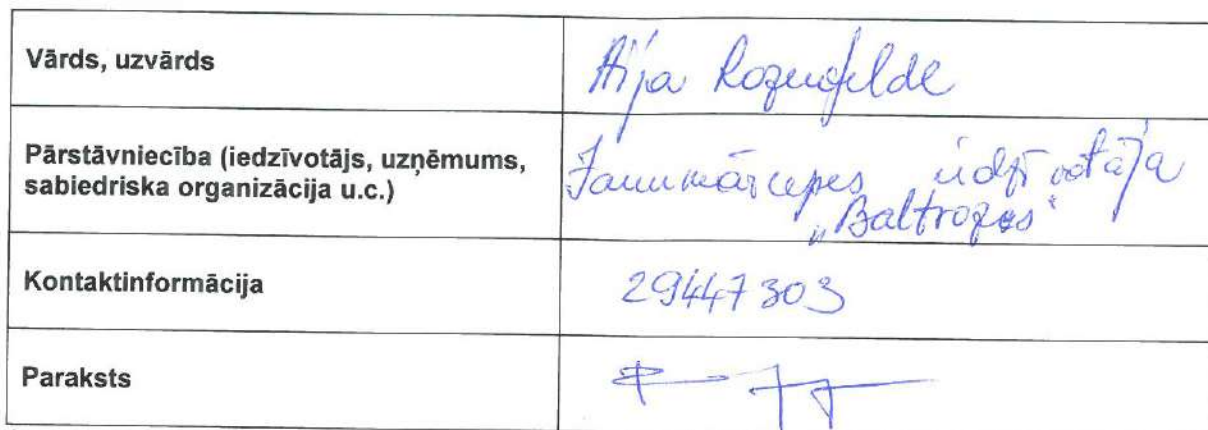 Vārds, uzvārds
Aija Rozenfelde
Pārstāvniecība (iedzīvotājs, uzņēmums,
sabiedriska organizācija u.c.)
Jaunmārupes iedzīvotāja
„Baltrozes"
Kontaktinformācija
29447303
Paraksts